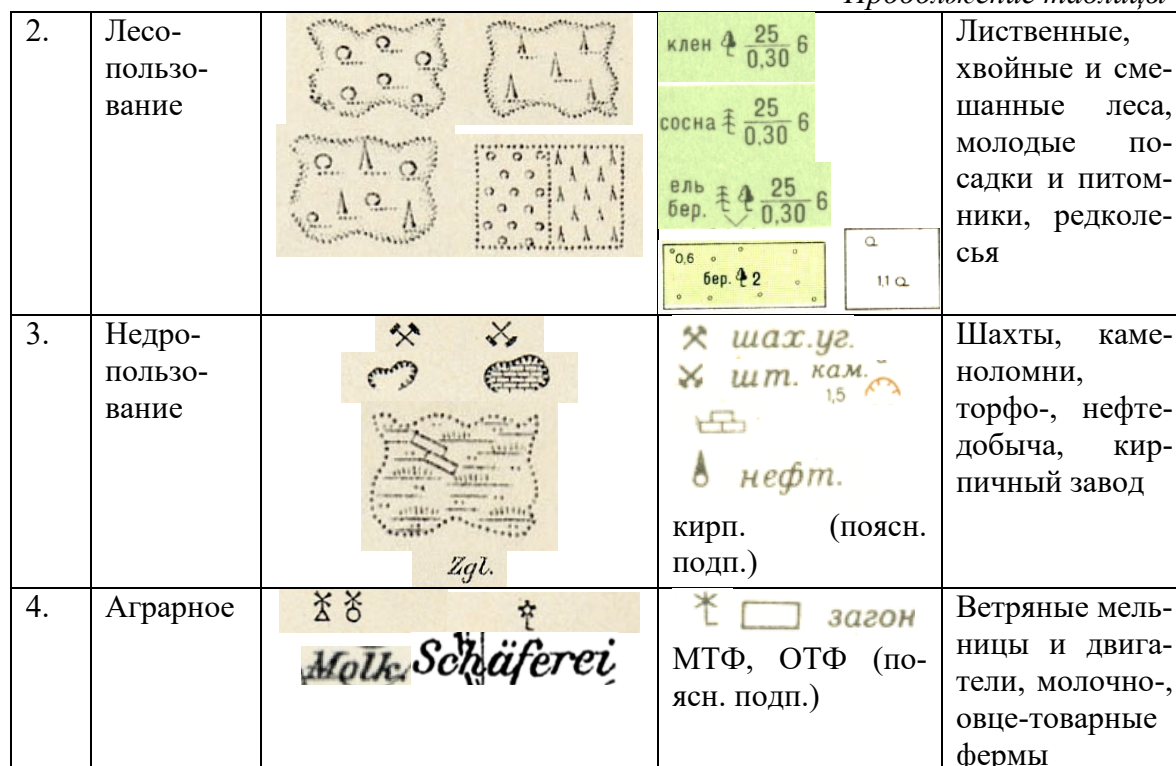 Продолжение таблицы
2.
Лесо-
пользо-
вание
клен 25/0,30 6
сосна 25/0,30 6
ель
бер. 25/0,30 6
0,6
бер. 2
1,1
Лиственные,
хвойные и сме-
шанные леса,
молодые по-
садки и питом-
ники, редколе-
сья
3.
Недро-
пользо-
вание
Zgl.
шах.уг.
шт. кам.
1,5
нефт.
кирп. (поясн.
подп.)
Шахты, каме-
ноломни,
торфо-, нефте-
добыча, кир-
пичный завод
4.
Аграрное
Molk. Schäferei
загон
МТФ, ОТФ (по-
ясн. подп.)
Ветряные мель-
ницы и двига-
тели, молочно-,
овце-товарные
фермы